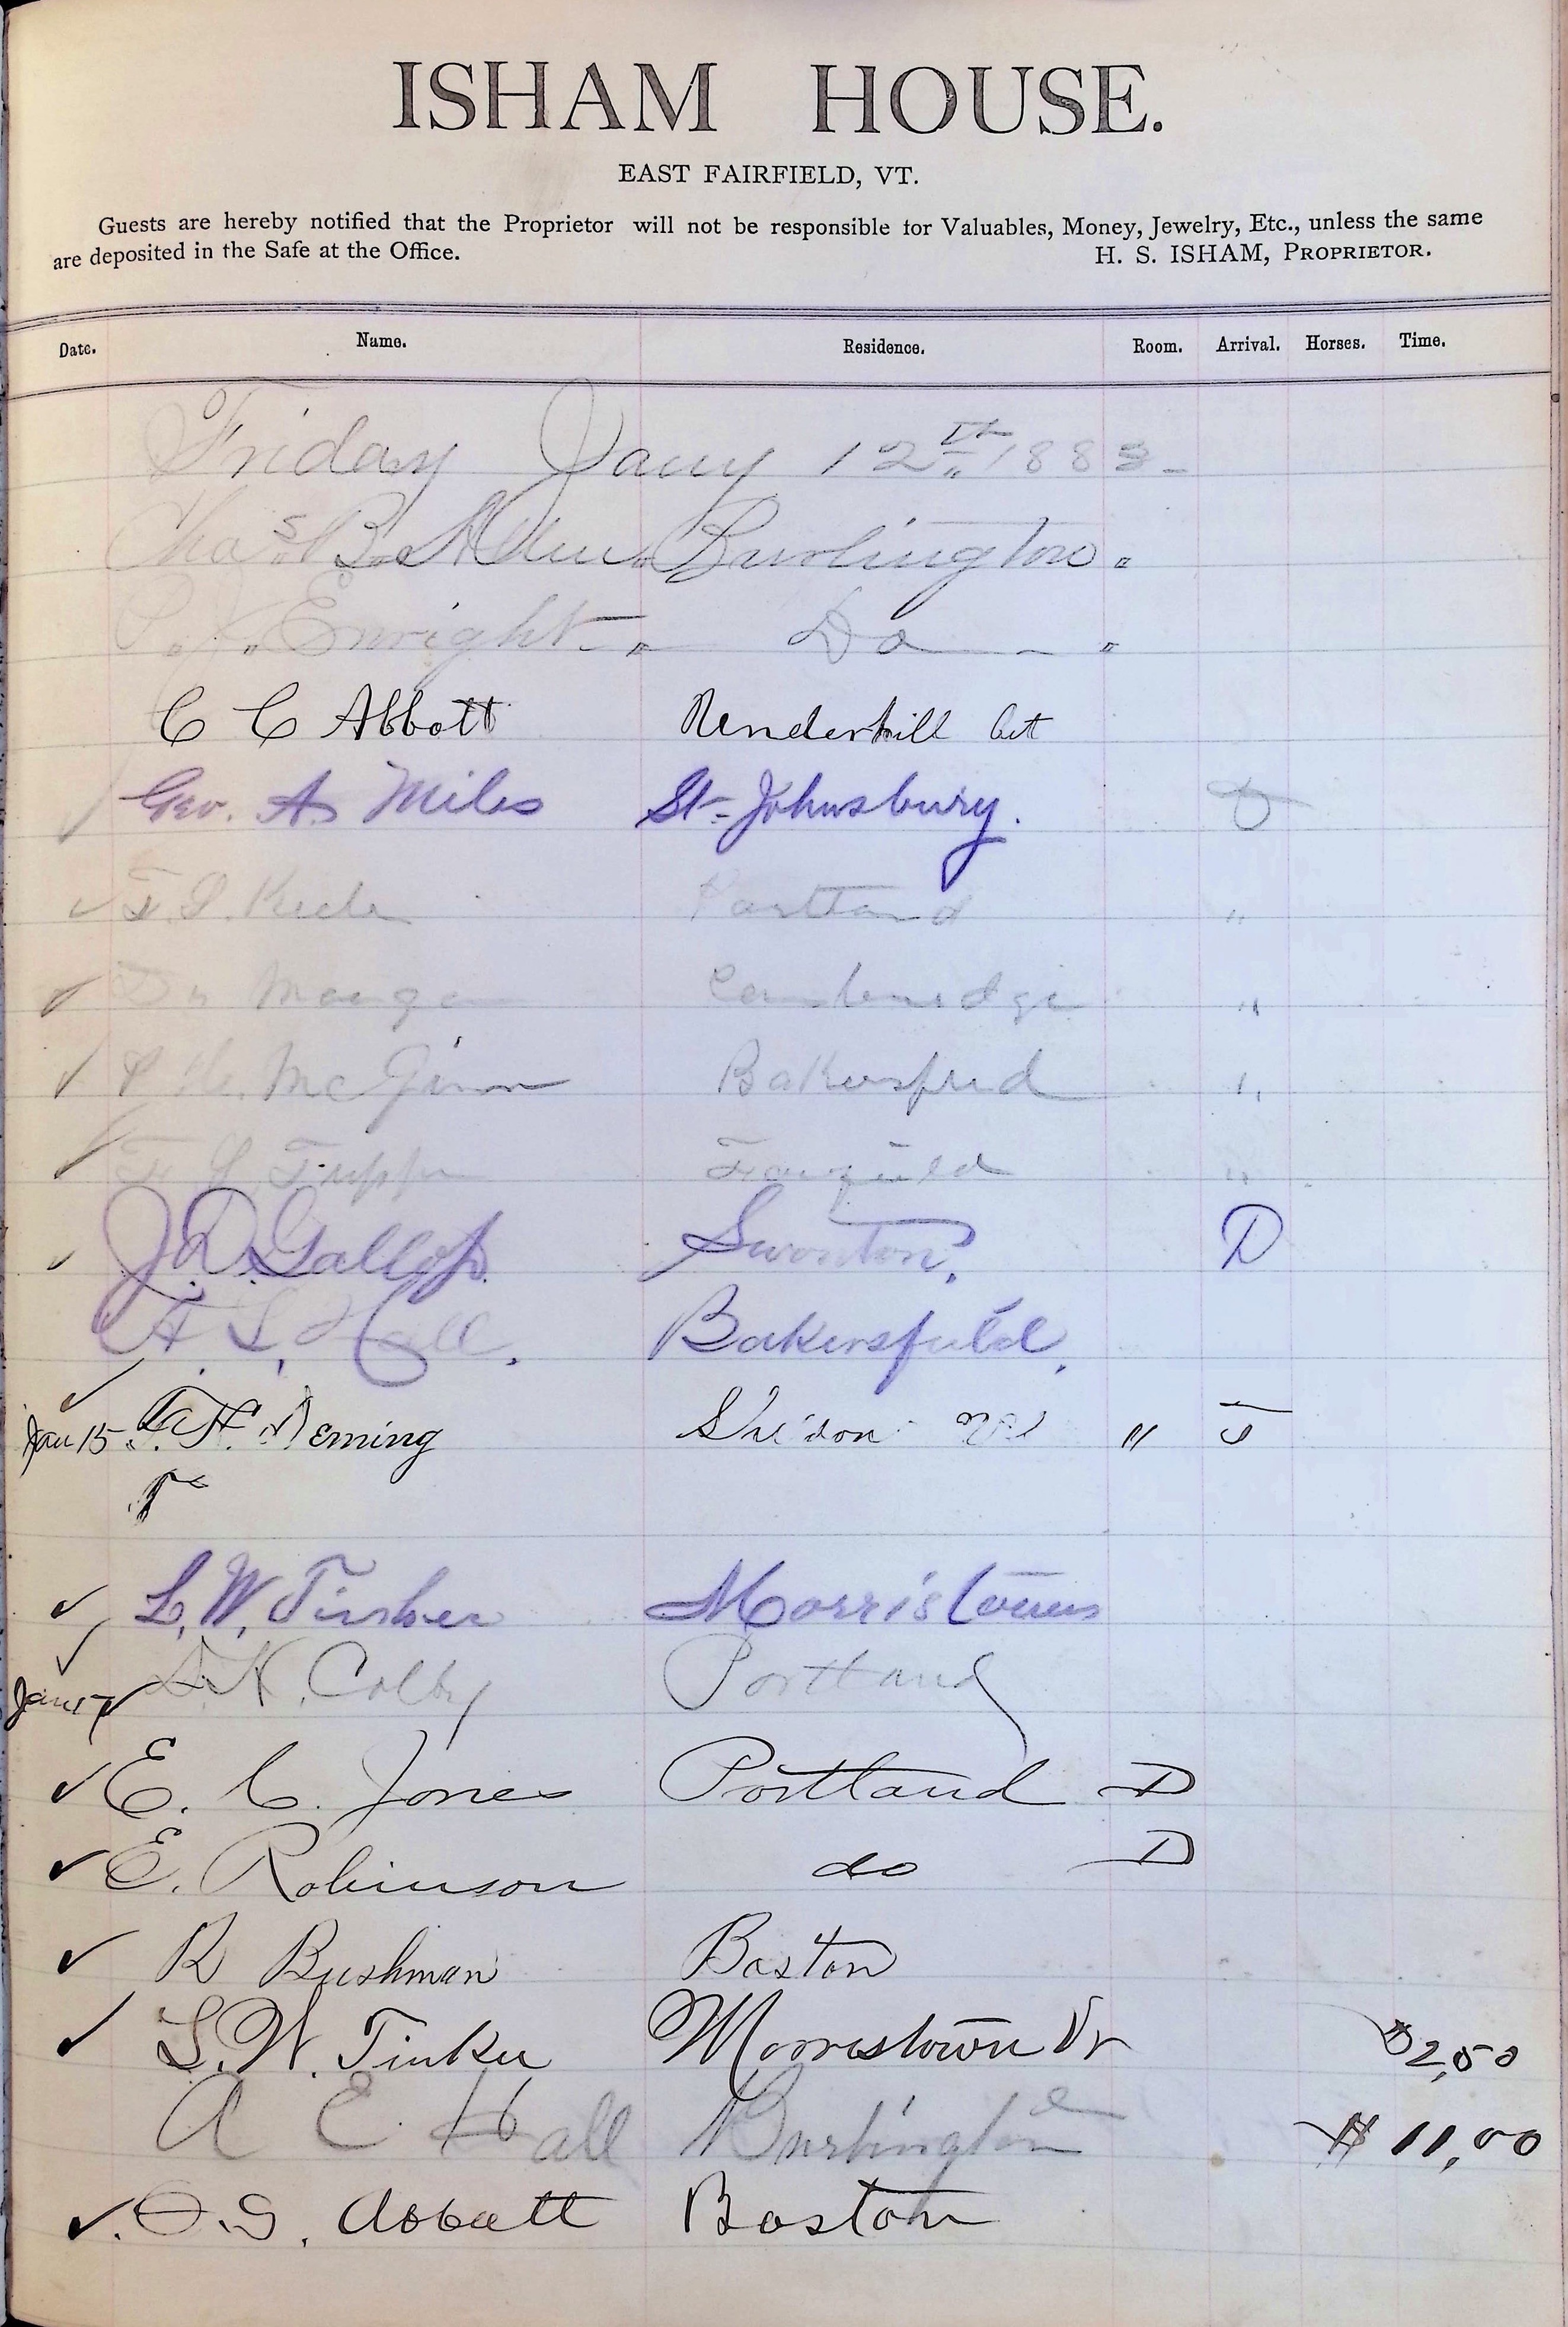 ISHAM HOUSE.
EAST FAIRFIELD, VT.
Guests are hereby notified that the Proprietor will not be responsible for Valuables, Money, Jewelry, Etc., unless the same
are deposited in the Safe at the Office. H. S. ISHAM, PROPRIETOR.
Date. Name. Residence. Room. Arrival. Horses. Time.
Friday Jany 12th 1883
Chas. B. Allen Burlington
Enright Do "
C C Abbott Underhill
Geo. A. Miles St. Johnsbury. D
Portland "
Dr Cambridge "
Mc Ginn Bakersfield "
Fairfield "
J. D. Gallop Swanton, D
A. S. Hall. Bakersfield.
Jan 15 Deming Sheldon " S
L. W. Tinker Morristown
Jan 17 Colby Portland
E. C. Jones Portland D
E. Robinson do D
R Bushman Boston
L. W. Tinker Morristown Vt $2,50
A E Hall Burlington $11,00
O. S. Abbott Boston